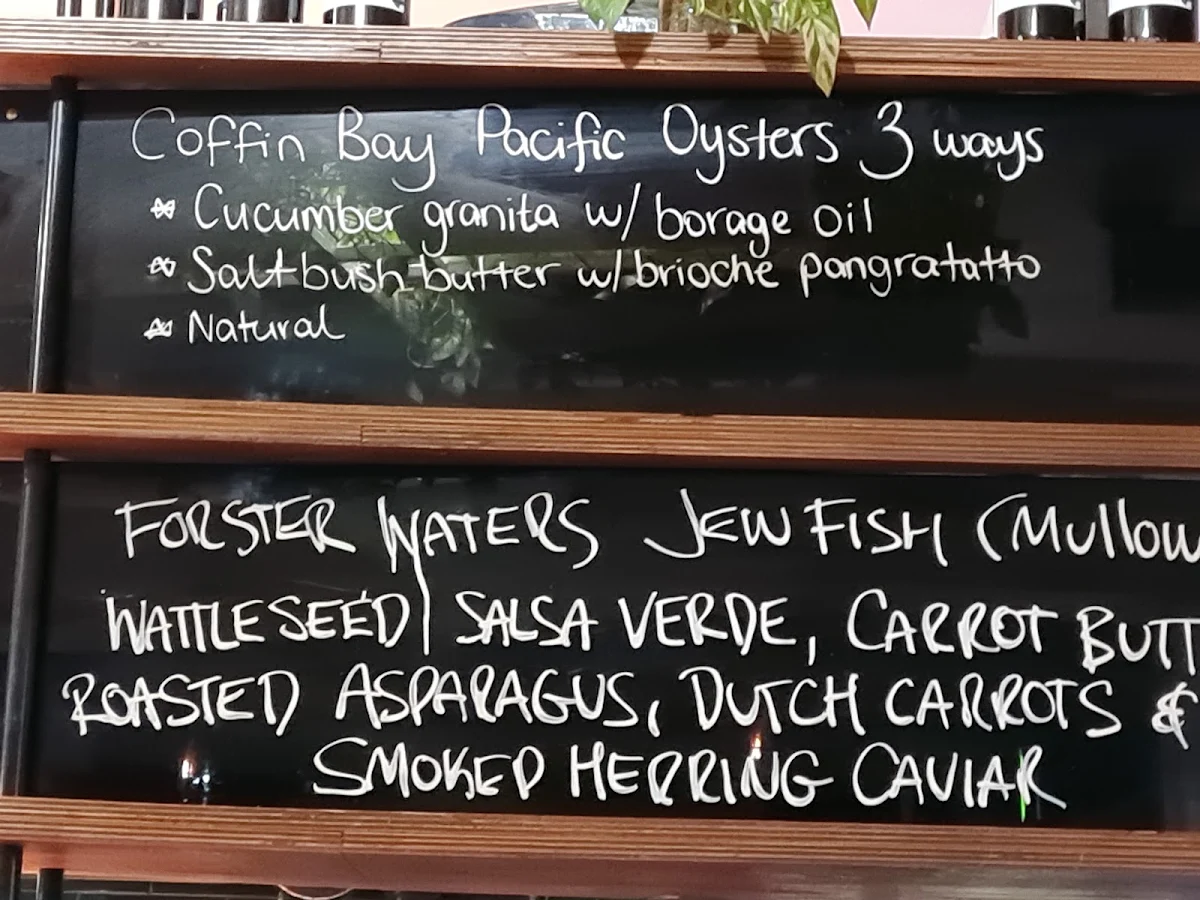 Coffin Bay Pacific Oysters 3 ways
* Cucumber granita w/ borage oil
* Saltbush butter w/ brioche pangratatto
* Natural
FORSTER WATERS JEW FISH (Mullow
WATTLESEED SALSA VERDE, CARROT BUTT
ROASTED ASPARAGUS, DUTCH CARROTS &
SMOKED HERRING CAVIAR